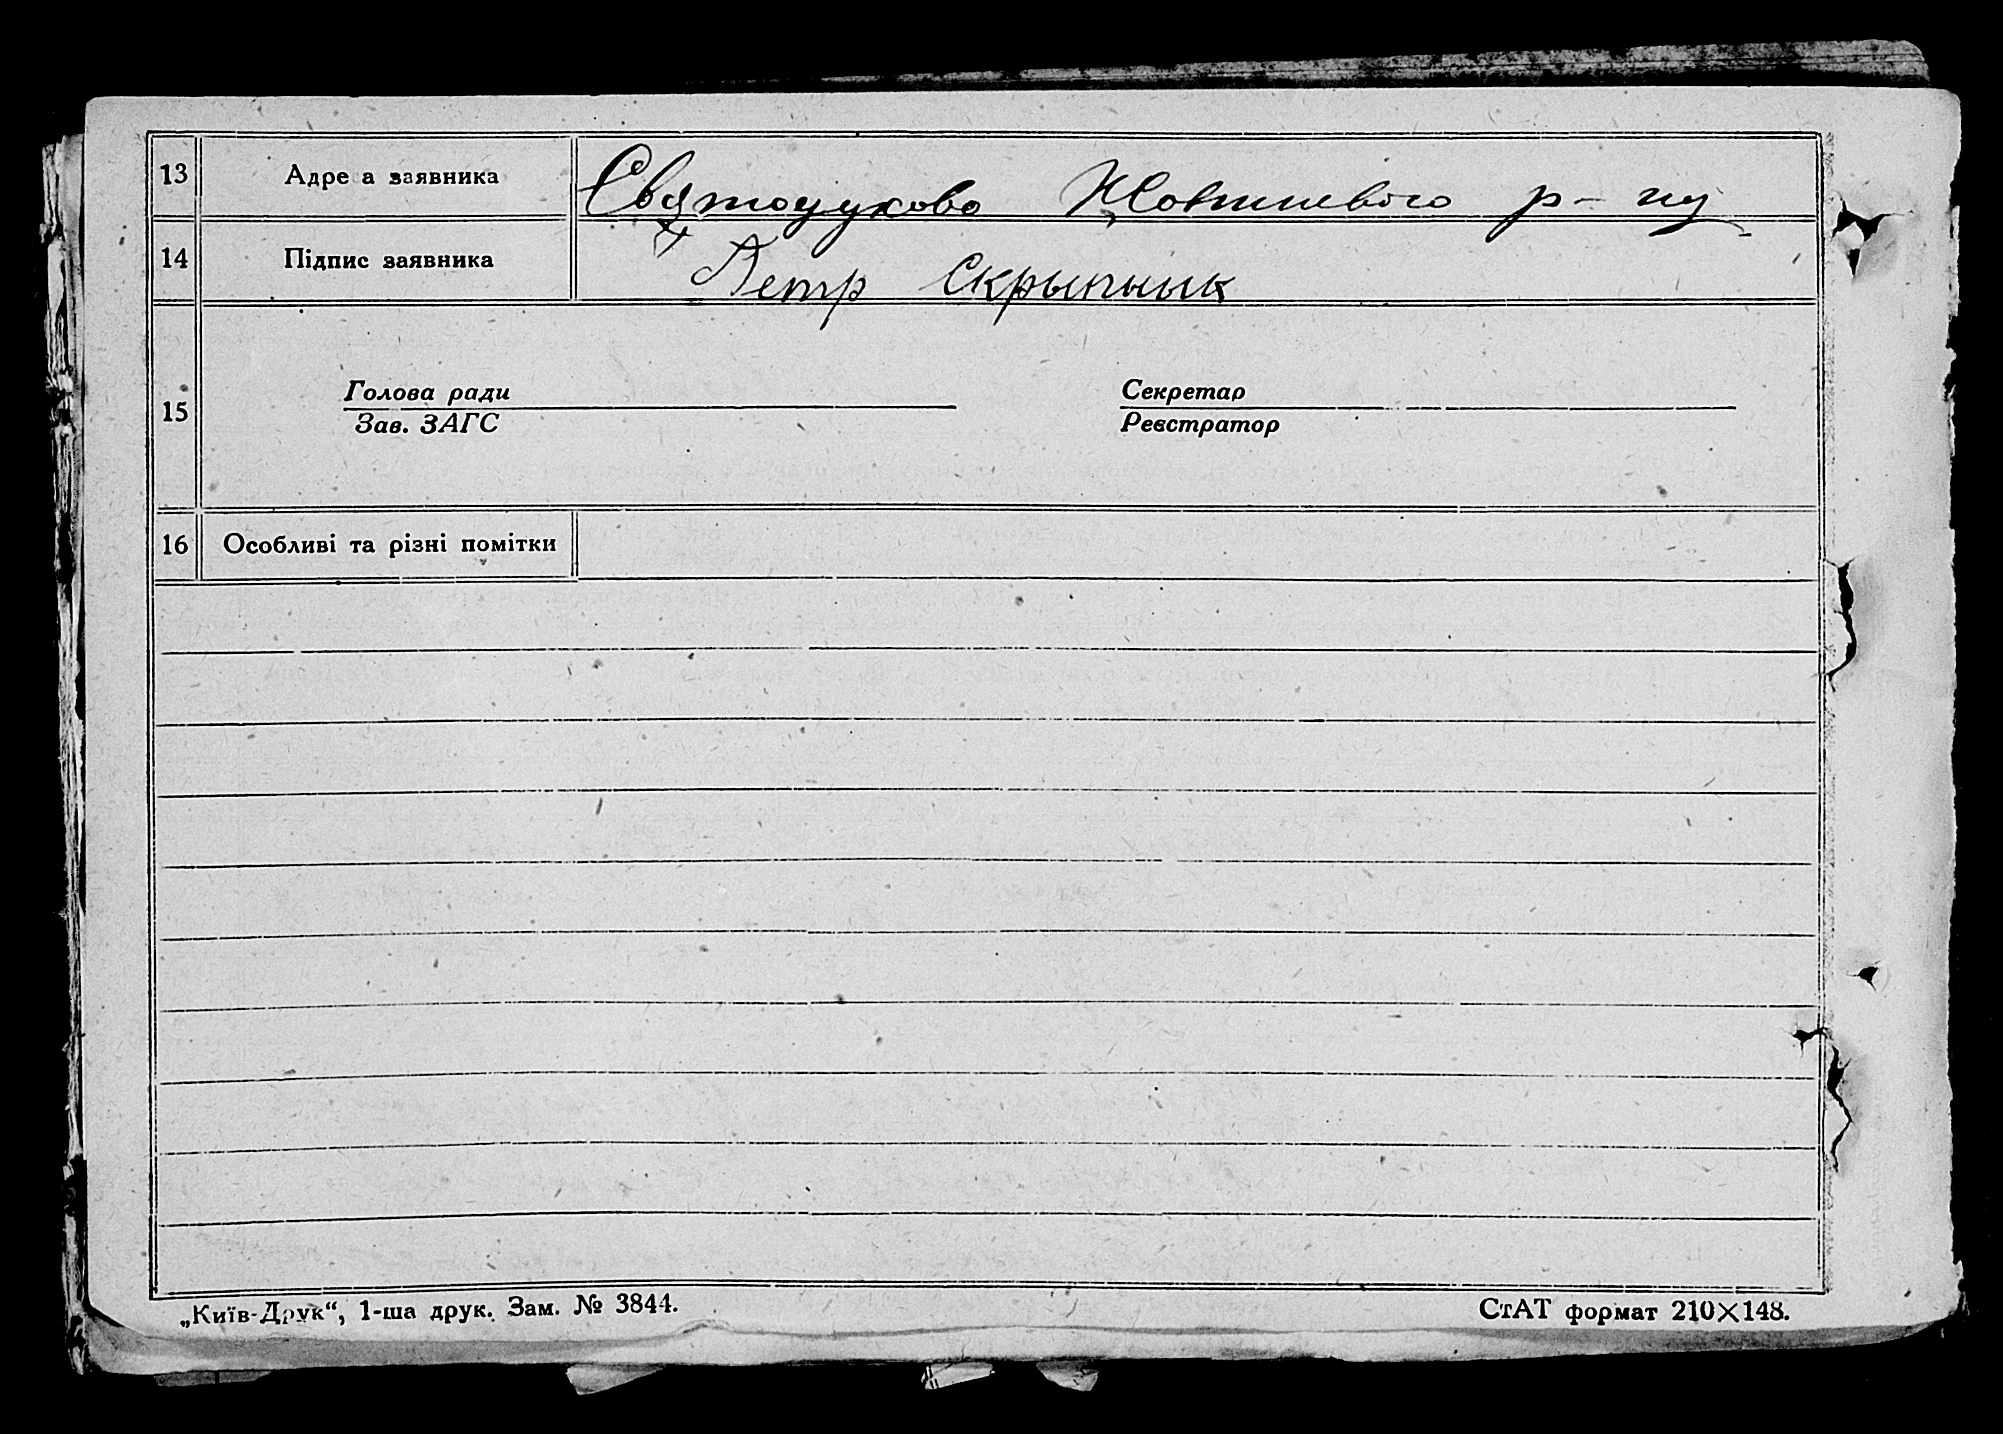 13 Адре а заявника Святоцуково Жовтневого р-ну
14 Підпис заявника Петр Скрыпнык
15
Голова ради Секретар
Зав. ЗАГС Реєстратор
16 Особливі та різні помітки
„Київ-Друк“, 1-ша друк. Зам. № 3844. СтАТ формат 210×148.